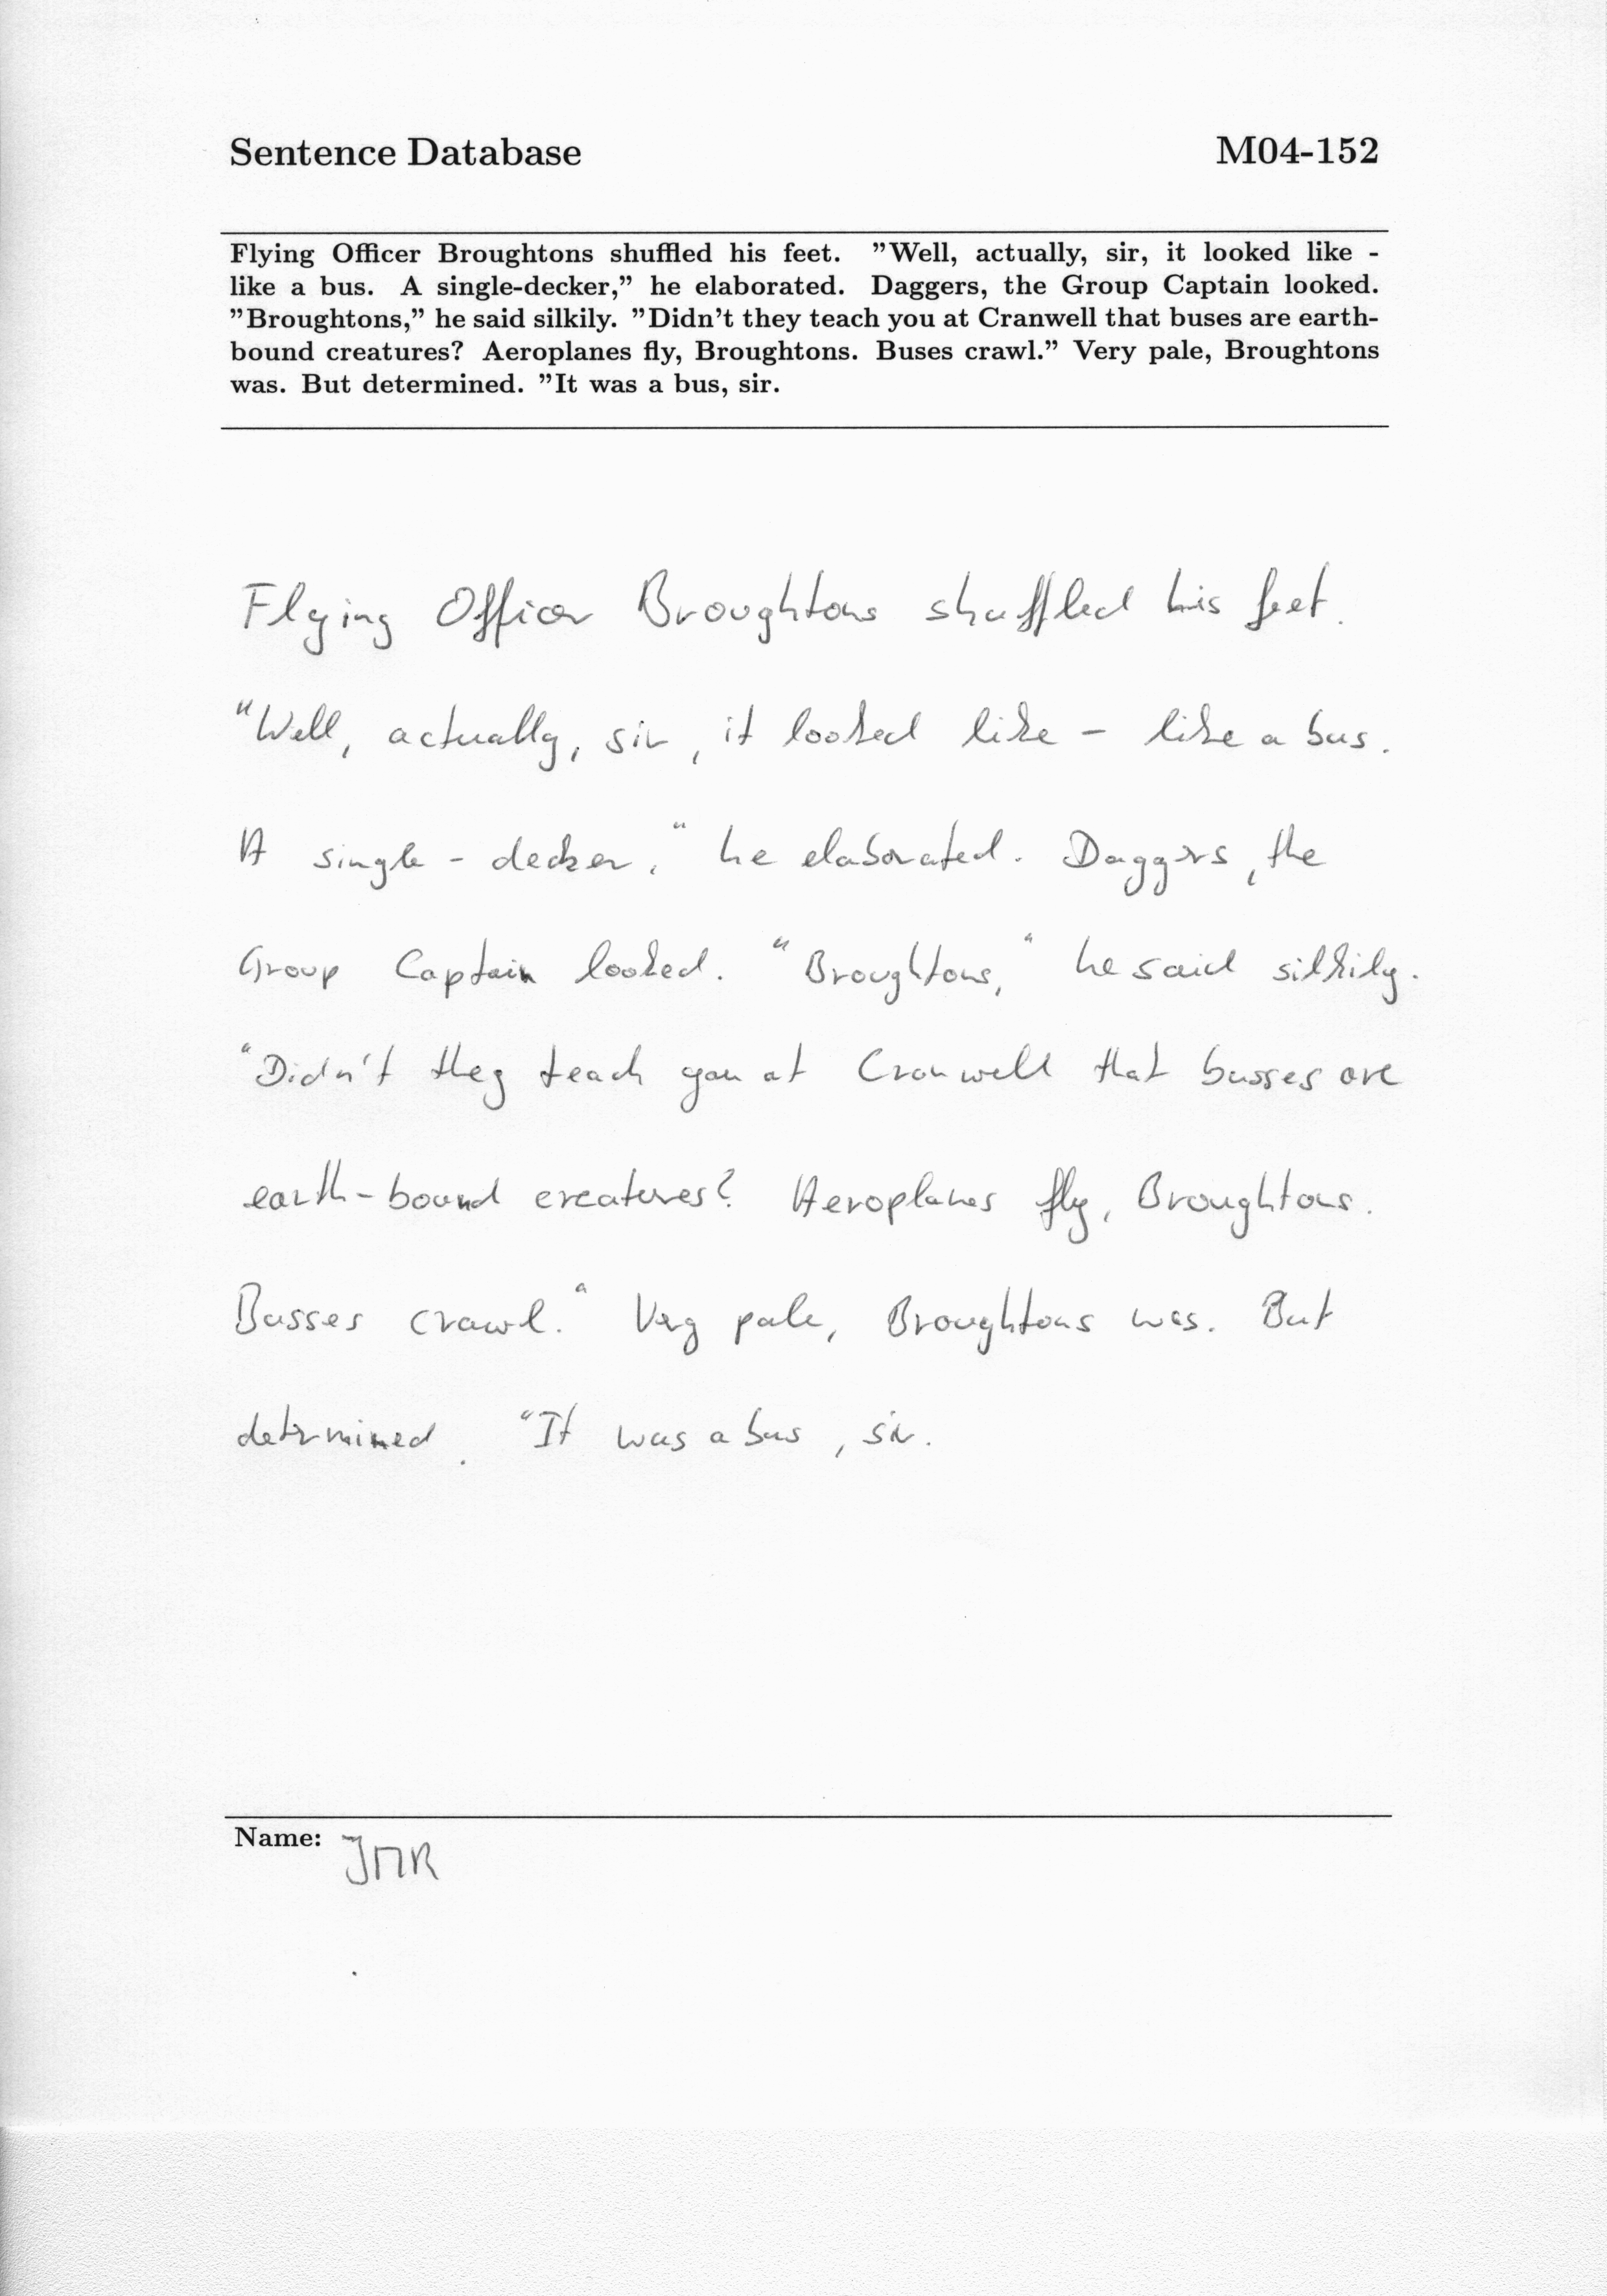 Sentence Database M04-152
Flying Officer Broughtons shuffled his feet. "Well, actually, sir, it looked like -
like a bus. A single-decker," he elaborated. Daggers, the Group Captain looked.
"Broughtons," he said silkily. "Didn't they teach you at Cranwell that buses are earth-
bound creatures? Aeroplanes fly, Broughtons. Buses crawl." Very pale, Broughtons
was. But determined. "It was a bus, sir.
Flying Officer Broughtons shuffled his feet.
"Well, actually, sir, it looked like - like a bus.
A single-decker," he elaborated. Daggers, the
Group Captain looked. "Broughtons," he said silkily.
"Didn't they teach you at Cranwell that busses are
earth-bound creatures? Aeroplanes fly, Broughtons.
Busses crawl." Very pale, Broughtons was. But
determined. "It was a bus, sir.
Name: JMR